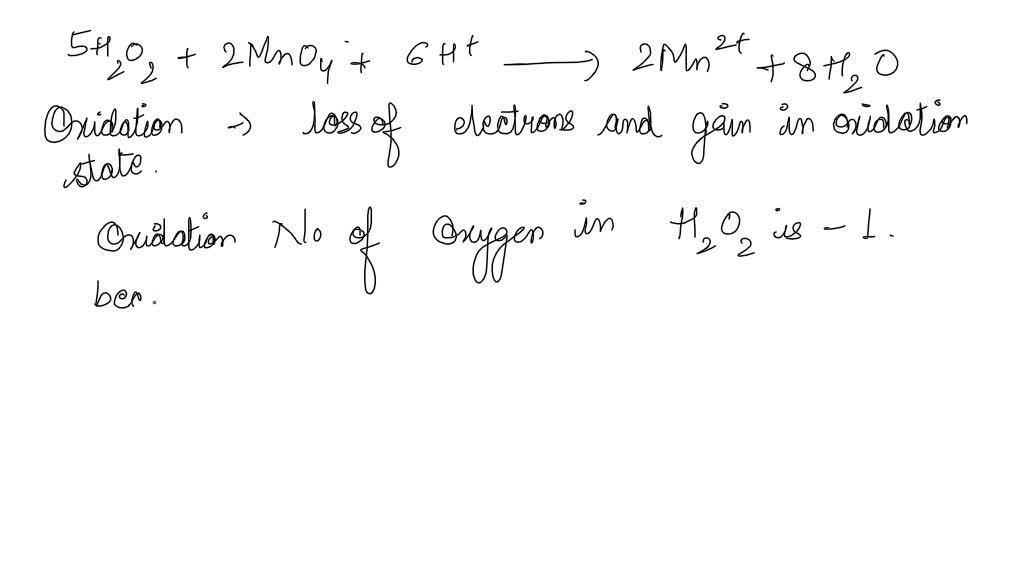 5H₂O₂ + 2MnO₄⁻ + 6H⁺ ⟶ 2Mn²⁺ + 8H₂O
Oxidation → loss of electrons and gain in oxidation
state.
Oxidation No of Oxygen in H₂O₂ is -1.
ber.